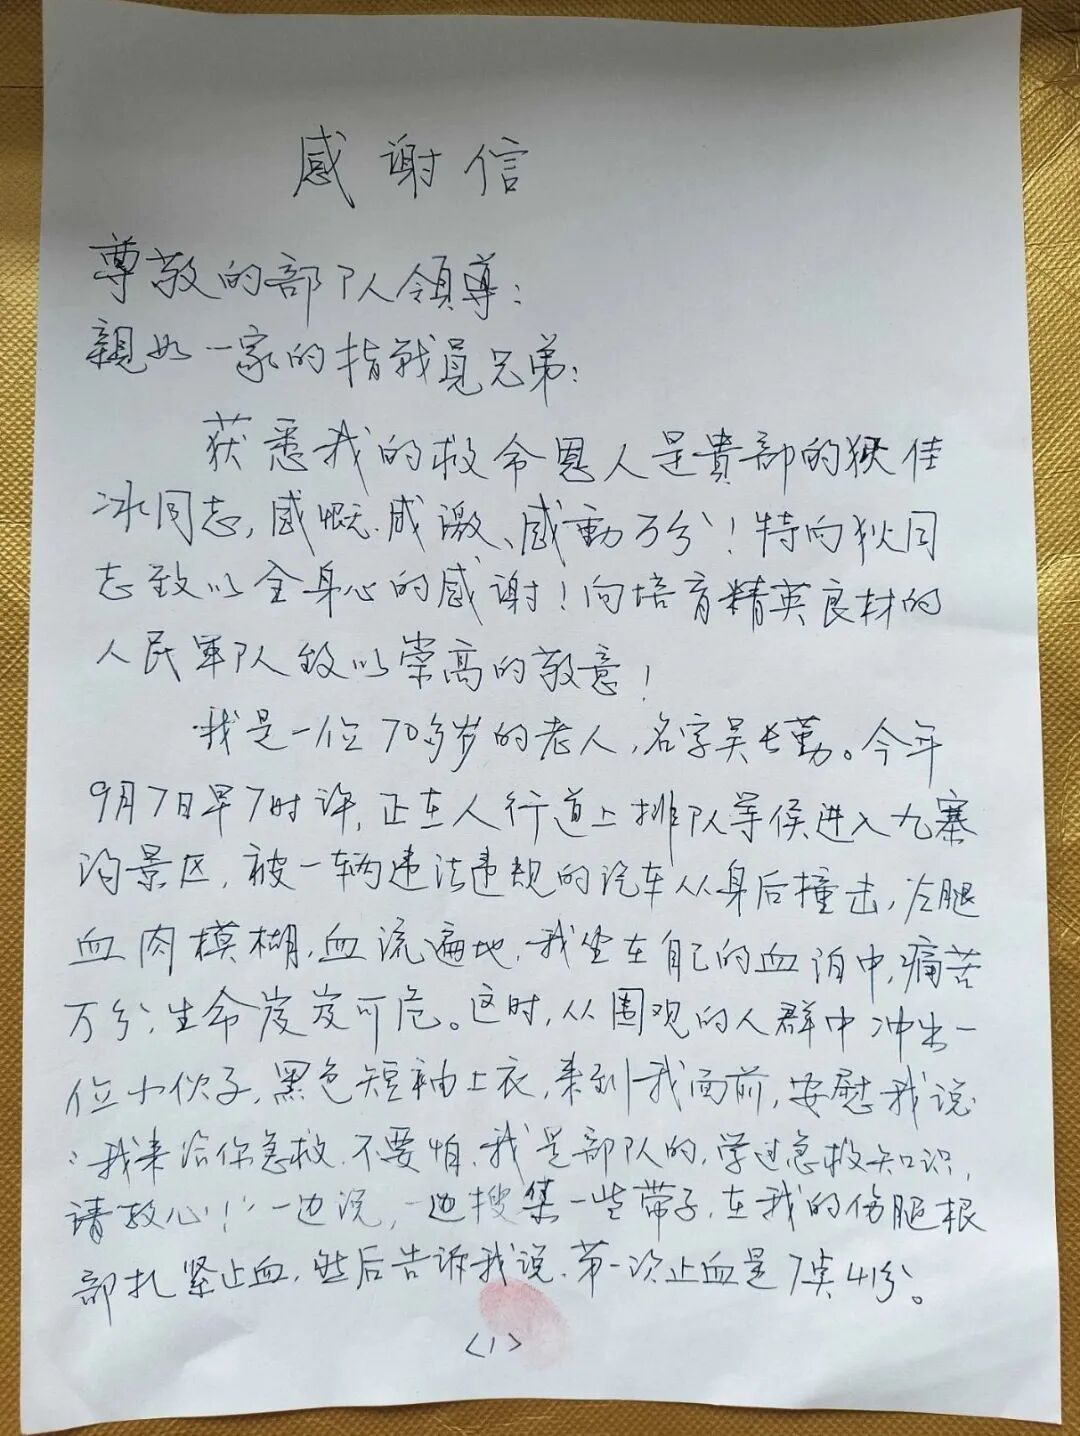 感谢信
尊敬的部队领导：
親如一家的指战員兄弟：
获悉我的救命恩人是貴部的狄佳
冰同志，感慨、感激、感動万分！特向狄同
志致以全身心的感谢！向培育精英良材的
人民軍队致以崇高的敬意！
我是一位70多岁的老人，名字吴长勤。今年
9月7日早7时许，正在人行道上排队等侯进入九寨
沟景区，被一辆违法违规的汽车从身后撞击，左腿
血肉模糊，血流遍地，我坐在自己的血泊中，痛苦
万分，生命岌岌可危。这时，从围观的人群中冲出一
位小伙子，黑色短袖上衣，来到我面前，安慰我说
：“我来给你急救，不要怕，我是部队的，学过急救知识，
请放心！”一边说，一边搜集一些带子，在我的伤腿根
部扎紧止血，然后告诉我说，第一次止血是7点41分。
<1>